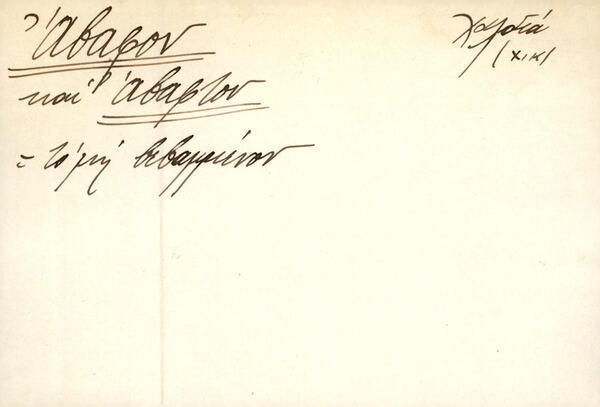 Ἄβαφον
καὶ Ἄβαφτον
= τὸ μὴ βεβαμμένον
(Χ.Ι.Κ)